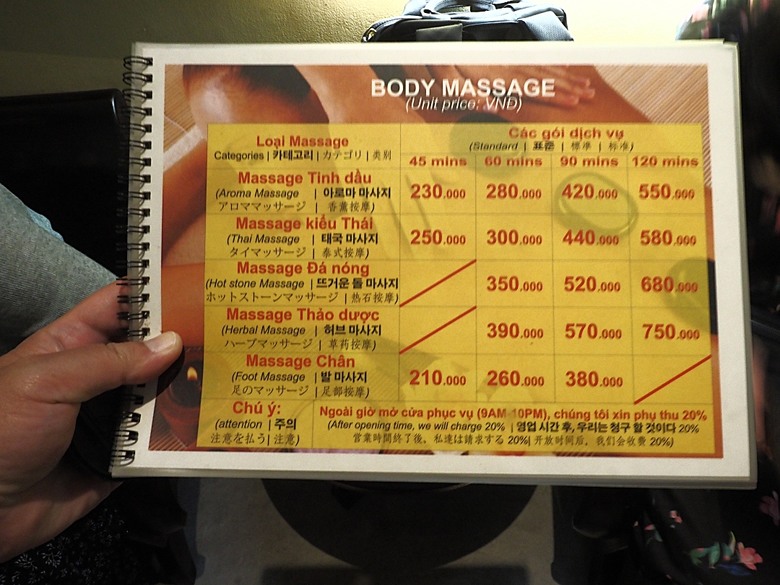 BODY MASSAGE
(Unit price: VNĐ)
Loại Massage
Categories | 카테고리 | カテゴリ | 类别
Các gói dịch vụ
(Standard | 표준 | 標準 | 标准)
45 mins 60 mins 90 mins 120 mins
Massage Tinh dầu
(Aroma Massage | 아로마 마사지
アロママッサージ | 香薰按摩)
230.000 280.000 420.000 550.000
Massage kiểu Thái
(Thai Massage | 태국 마사지
タイマッサージ | 泰式按摩)
250.000 300.000 440.000 580.000
Massage Đá nóng
(Hot stone Massage | 뜨거운 돌 마사지
ホットストーンマッサージ | 热石按摩)
350.000 520.000 680.000
Massage Thảo dược
(Herbal Massage | 허브 마사지
ハーブマッサージ | 草药按摩)
390.000 570.000 750.000
Massage Chân
(Foot Massage | 발 마사지
足のマッサージ | 足部按摩)
210.000 260.000 380.000
Chú ý:
(attention | 주의
注意を払う | 注意)
Ngoài giờ mở cửa phục vụ (9AM-10PM), chúng tôi xin phụ thu 20%
(After opening time, we will charge 20% | 영업 시간 후, 우리는 청구 할 것이다 20%
営業時間終了後、私達は請求する 20%| 开放时间后，我们会收费 20%)